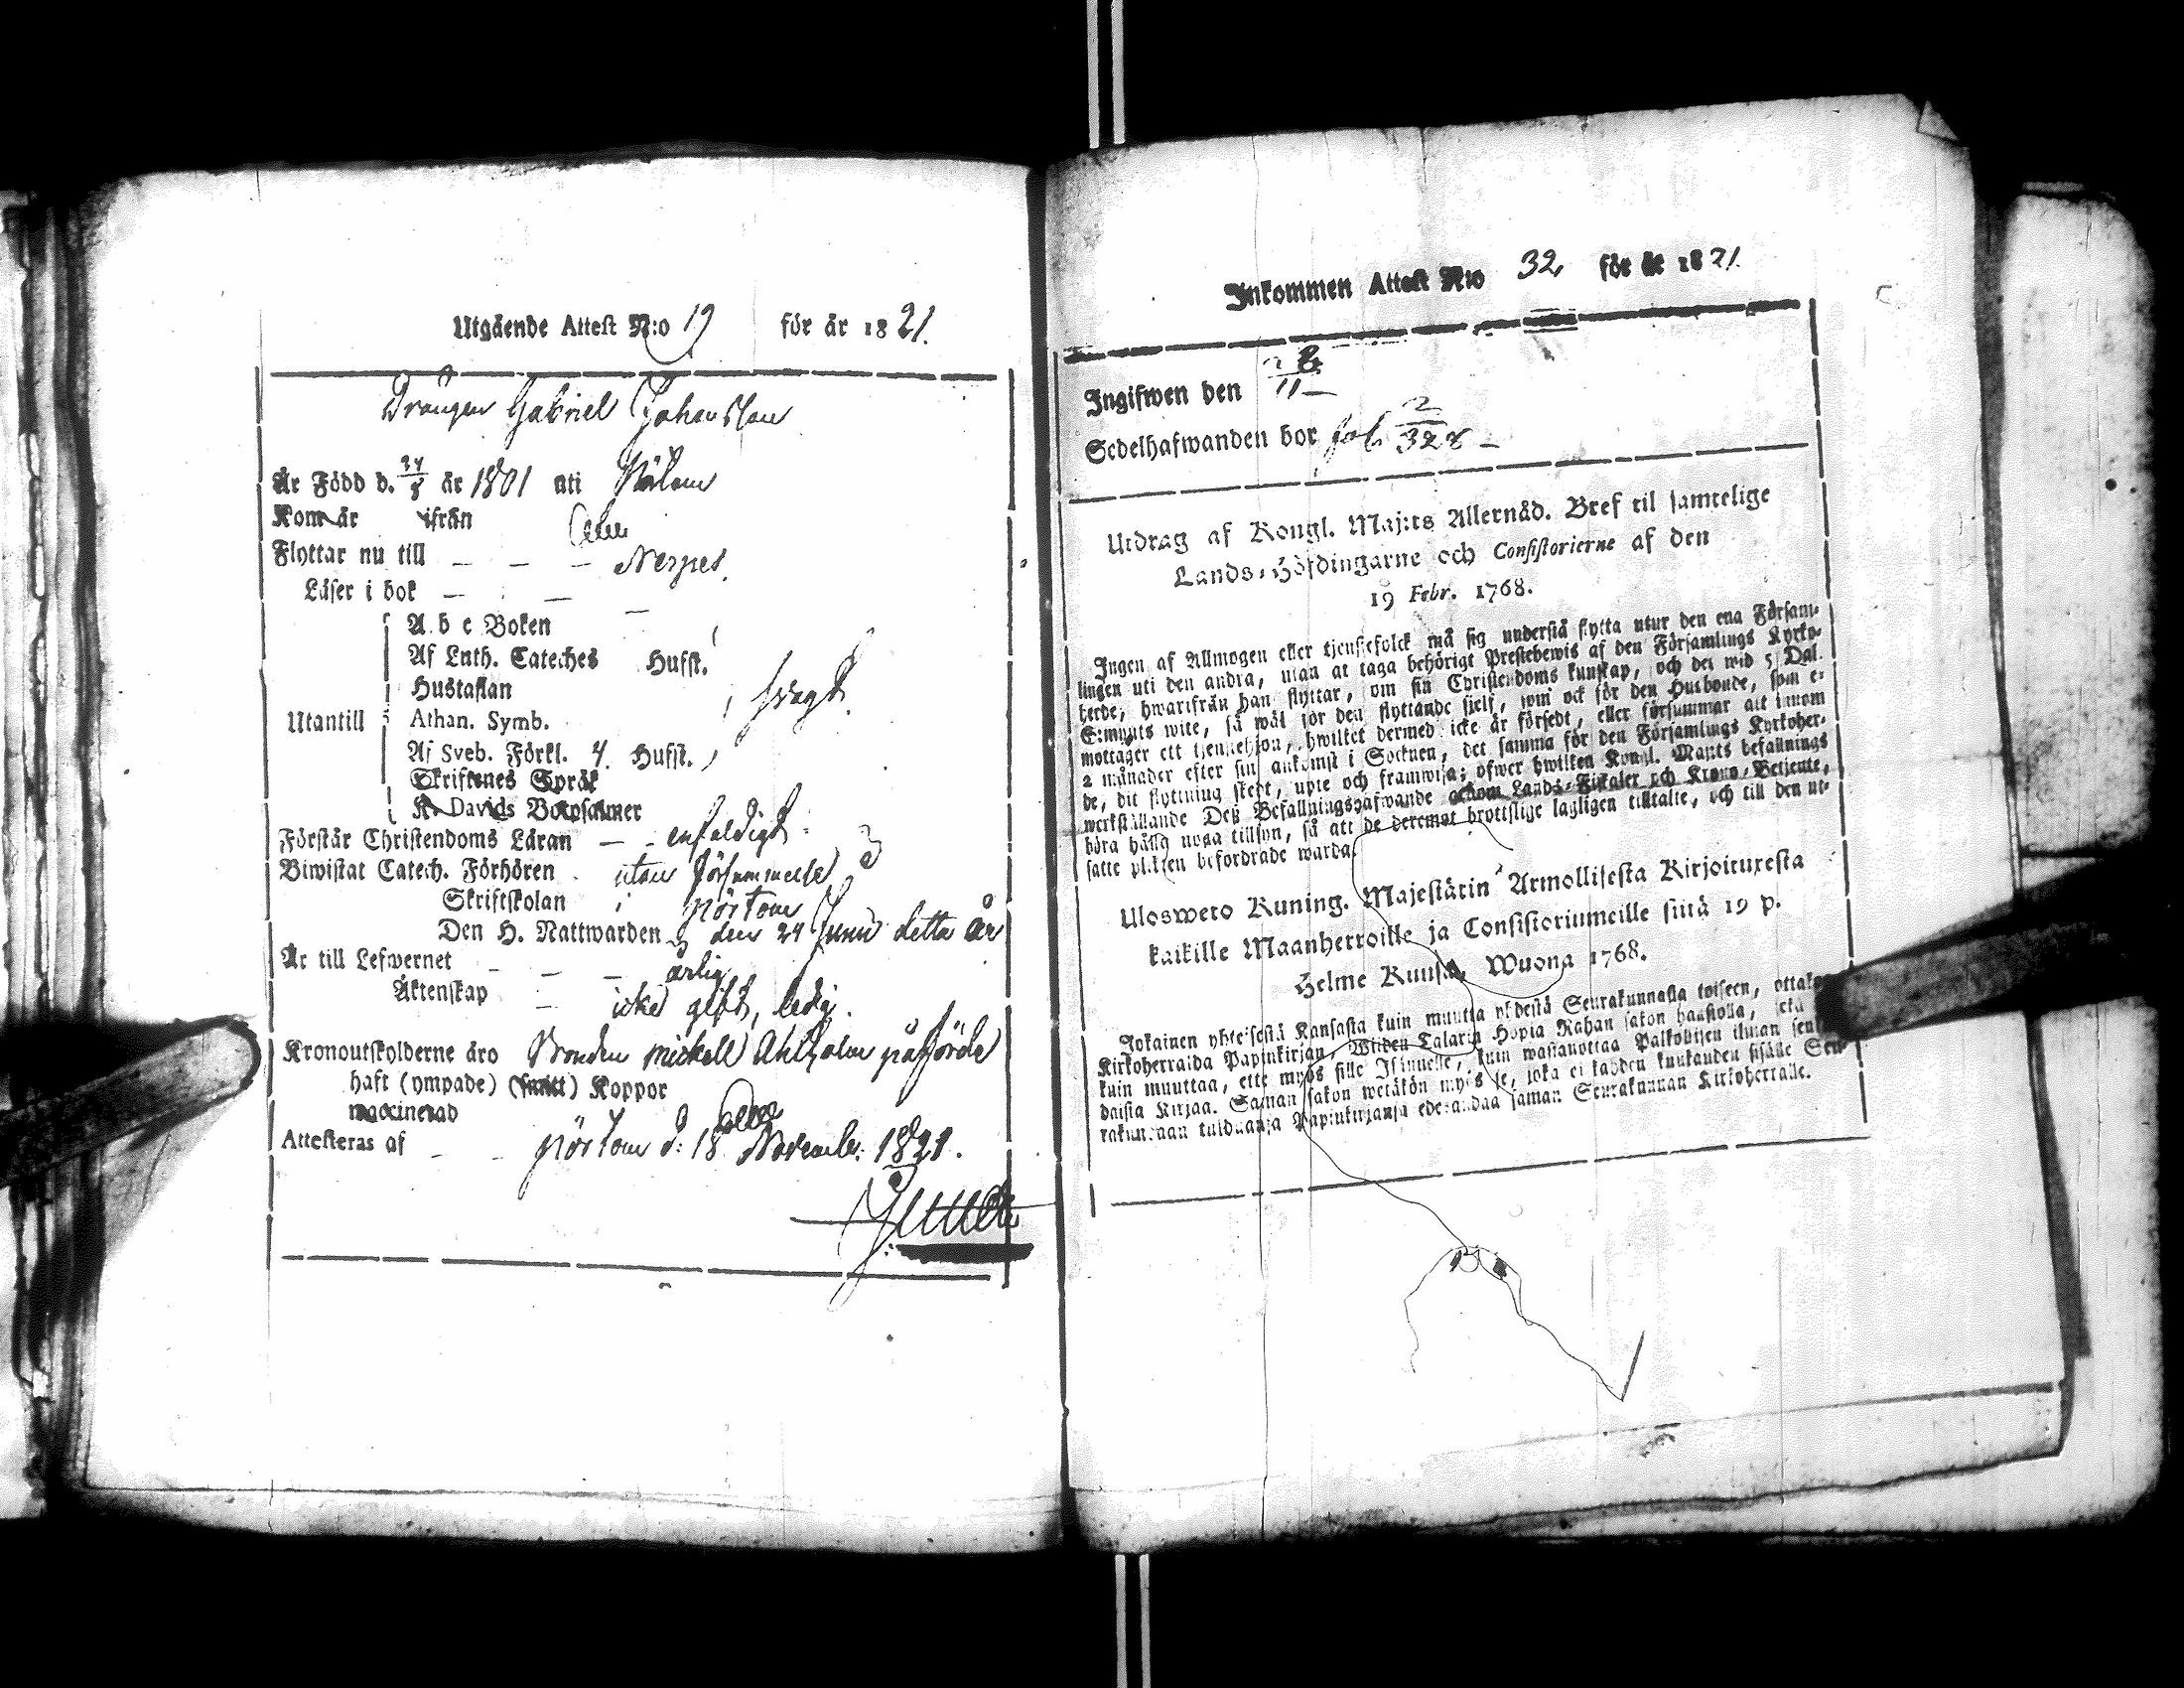 Utgående Attest N:o 19 för år 1821.
Drängen Gabriel Johansson
Är Född d. 24/8 år 1801 uti
Kom år ifrån
Flyttar nu till — — — Nerpes.
Läser i bok — — —
A b c Boken
Af Luth. Cateches Hufst.
Hustaflan
Utantill Athan. Symb. svagt
Af Sveb. Förkl. 4. Hufst.
Skriftenes Språk
K Davids Botpsalmer
Förstår Christendoms Läran — enfaldigt
Biwistat Catech. Förhören utan försummelse
Skriftskolan i Pörtom
Den H. Nattwarden den 24 Junii detta år
Är till Lefwernet — — — ärlig
Äktenskap — icke gift, ledig.
Kronoutskylderne äro Bonden Mickell Ahlholm påförde
haft (ympade) (smitt) Koppor
vaccinerad
Attesteras af — — Pörtom d: 18 November: 1821.
Inkommen Attest N:o 32, för år 1821.
Ingifwen den /11 —
Sedelhafwanden bor fol. 2/328 —
Utdrag af Kongl. Maj:ts Allernåd. Bref til samtelige
Lands-Höfdingarne och Consistorierne af den
19 Febr. 1768.
Ingen af Allmogen eller tjenstefolck må sig understå flytta utur den ena Försam-
lingen uti den andra, utan at taga behörigt Prestebewis af den Församlings Kyrko-
herde, hwarifrån han flyttar, om sin Christendoms kunskap, och det wid 5 Dal.
S:mynts wite, så wäl för den flyttande sjelf, som ock för den Husbonde, som e-
mottager ett tjenstehjon, hwilket dermed icke är försedt, eller försummar att innom
2 månader efter sin ankomst i Socknen, det samma för den Församlings Kyrkoher-
de, dit flyttning skedt, upte och framwisa; öfwer hwilken Kongl. Maj:ts befallnings
werkställande Deß Befallningshafwande genom Lands-Fiskaler och Krono-Betjente,
böra hålla noga tillsyn, så att de deremot brottslige lagligen tilltalte, och till den ut-
satte plikten befordrade warda.
Ulosweto Kuning. Majestätin Armollisesta Kirjoituxesta
kaikille Maanherroille ja Consistoriumeille siitä 19 p.
Helme Kuusa, Wuona 1768.
Jokainen yhteisestä Kansasta kuin muutta yhdestä Seurakunnasta toiseen, ottak
Kirkoherralda Papinkirjan, Wijden Talarin Hopia Rahan sakon haastolla, sekä
kuin muuttaa, ette myös sille Isännelle, kuin wastanottaa Palkollisen ilman sen
daista Kirjaa. Saman sakon wetäkön myös se, joka ei kahden kuukauden sisälle Seu-
rakunnaan tulduansa Papinkirjansa edesandaa saman Seurakunnan Kirkoherralle.